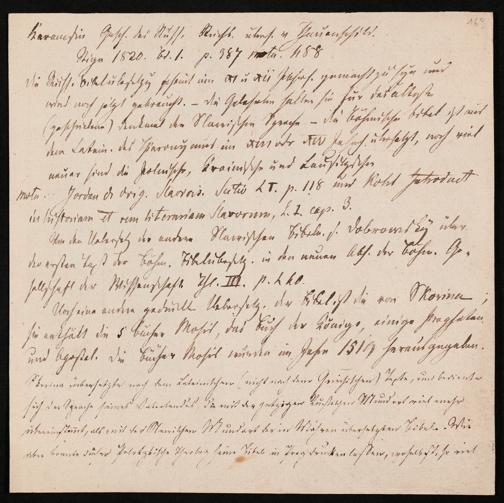 Karamsin Gesch. des Russ. Reichs. übers. v Hauenschild.
Riga 1820. Bd. 1. p. 387 nota. 488
die Russ. Bibelübersetzg scheint im XI u XII Jahrh. gemacht zu seyn und
wird noch jetzt gebraucht. — die Gelehrten halten sie für das älteste
(geschriebene) Denkmal der Slawischen Sprache — die Böhmische Bibel ist aus
dem Latein. des Hieronymus im XIII oder XIV Jahrh übersetzt, noch viel
neuer sind die Polnische, Krainische und Lausitzische
nota. Jordan de Orig. Slavicis. Sectio L T. p. 118 und Kohl Introduct
in historiam et rem literariam Slavorum, L. I. cap. 3.
Von den Uebersetz der andern Slawischen Bibeln s. Dobrowsky über
den ersten Text der Böhm. Bibelübersetz. in den neuen Abh. der Böhm. Ge-
sellschaft der Wissenschaft Thl. III. p. 240.
Noch eine andere gedruckte Uebersetz. der Bibel ist die von Skorina;
sie enthält die 5 Bücher Mosis, das Buch der Könige, einige Propheten
und Apostel. Die Bücher Mosis wurden im Jahr 1519 herausgegeben.
Skorina übersetzte nach dem Lateinischen (nicht nach dem Griechischen) Texte, und bediente
sich der Sprache seines Vaterlandes, die mit der heutigen Russischen Mundart viel mehr
übereinstimmt, als mit der Slawischen Mundart der in Mähren übersetzten Bibel. Wie
aber konnte dieser Polotzkische seine Bibel in Prag drucken lassen, woselbst, so viel